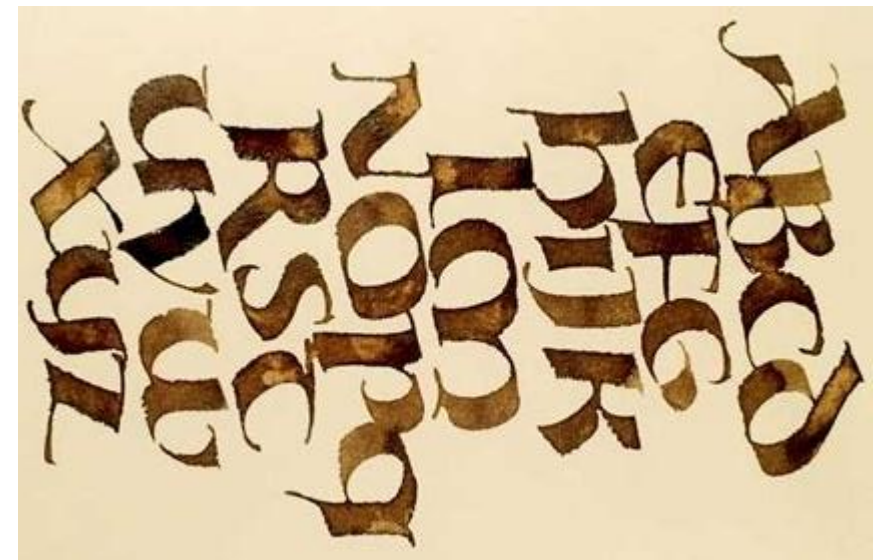 ABcd
eFG
hijk
Lm
Nopq
RSt
uvw
xyz